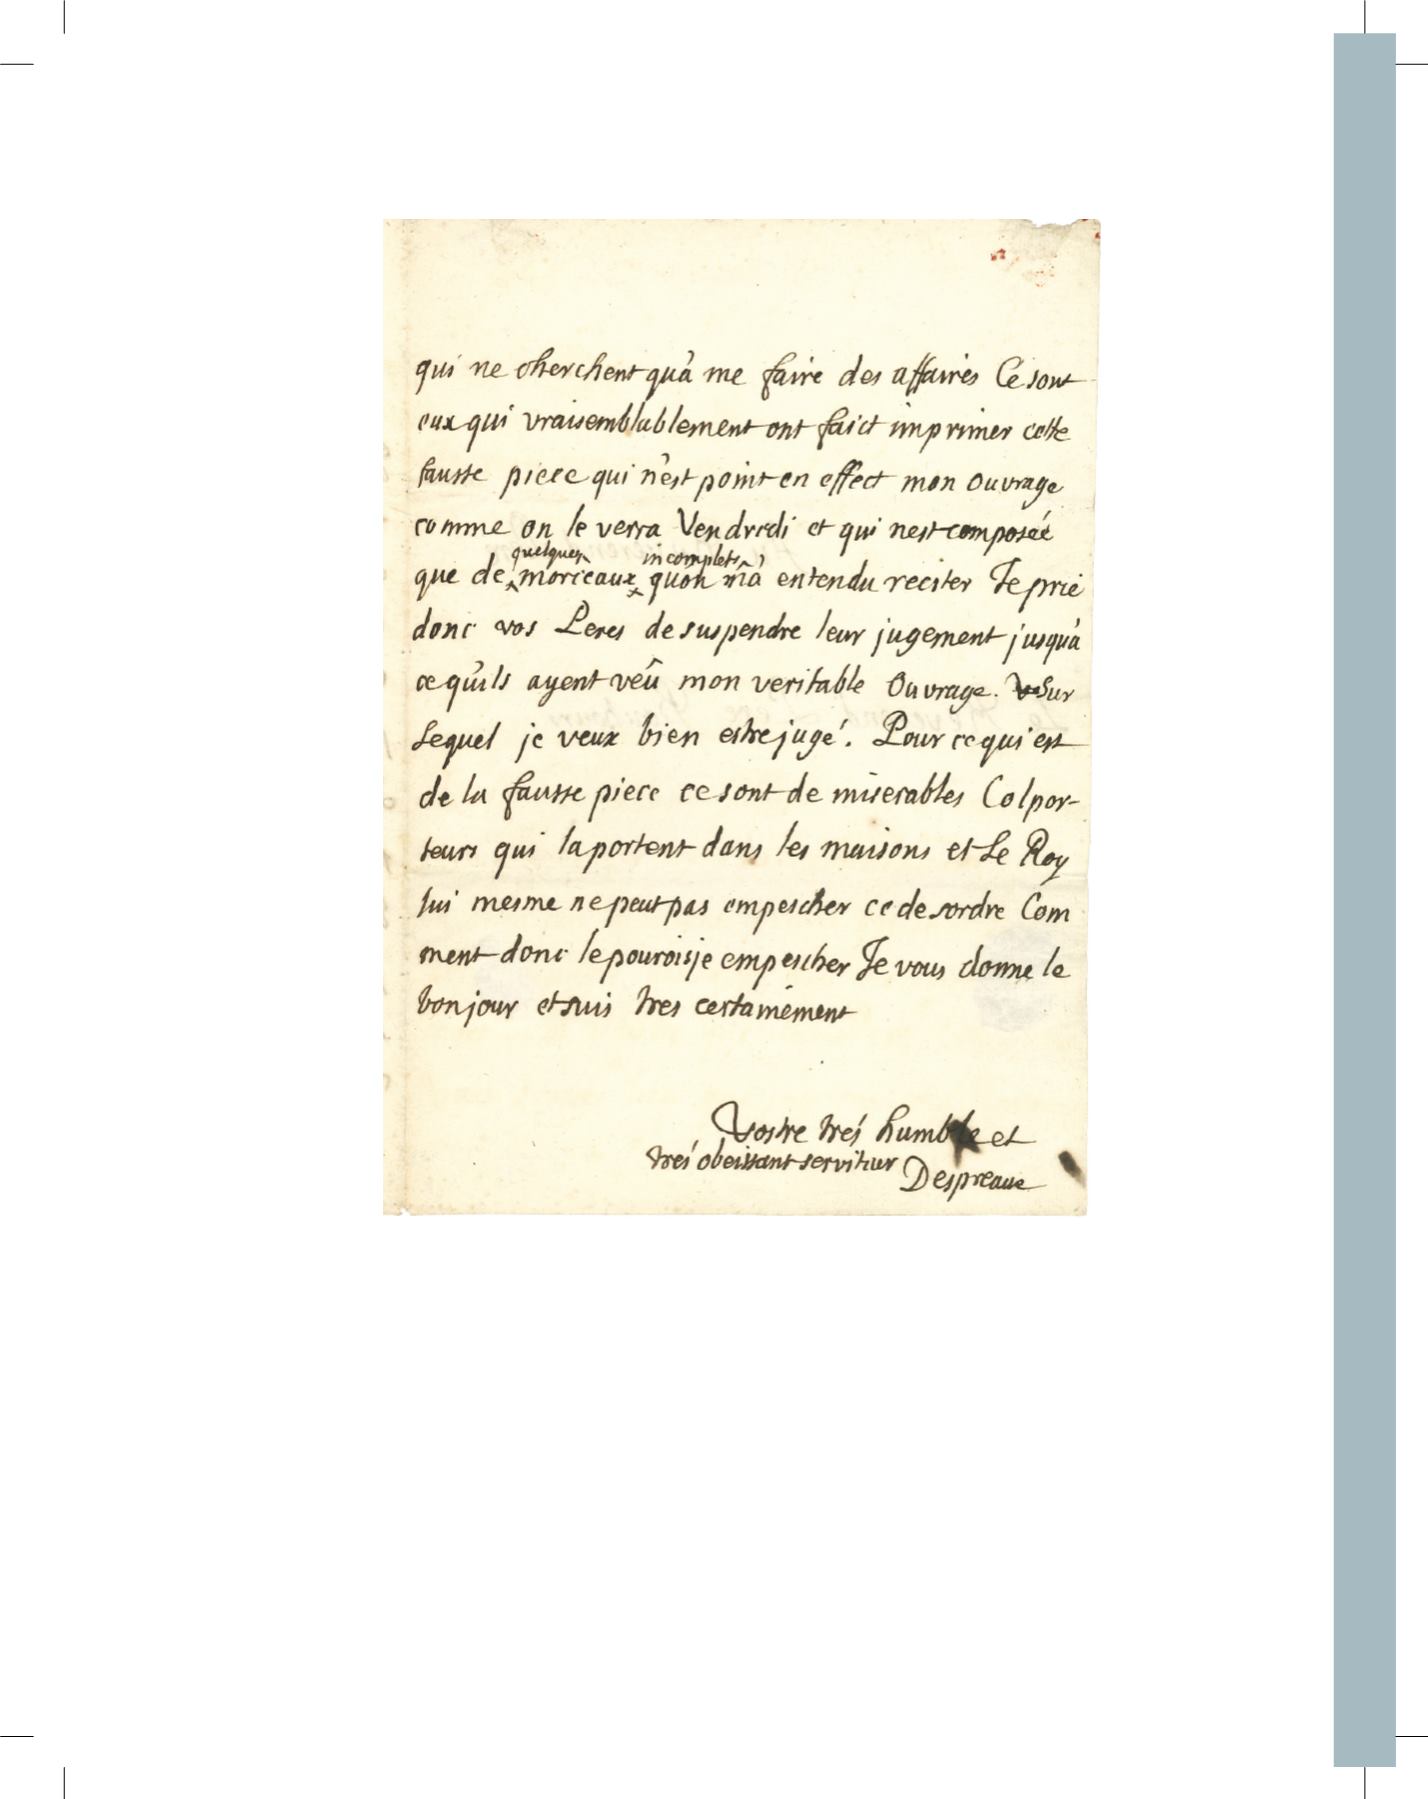 qui ne cherchent qu'à me faire des affaires Ce sont
eux qui vraisemblablement ont faict imprimer cette
fausse piece qui n'est point en effect mon Ouvrage
comme on le verra Vendredi et qui nest composée
quelques incomplets
que de morceaux quon m'a entendu reciter Je prie
donc vos Peres de suspendre leur jugement jusqu'à
ce qu'ils ayent veû mon veritable Ouvrage. Sur
Lequel je veux bien estre jugé. Pour ce qui est
de la fausse piece ce sont de miserables Colpor-
teurs qui la portent dans les maisons et Le Roy
lui mesme ne peut pas empescher ce desordre Com
ment donc le pourois je empescher Je vous donne le
bonjour et suis tres certainement
Vostre trés humble et
trés obeissant serviteur
Despreaux